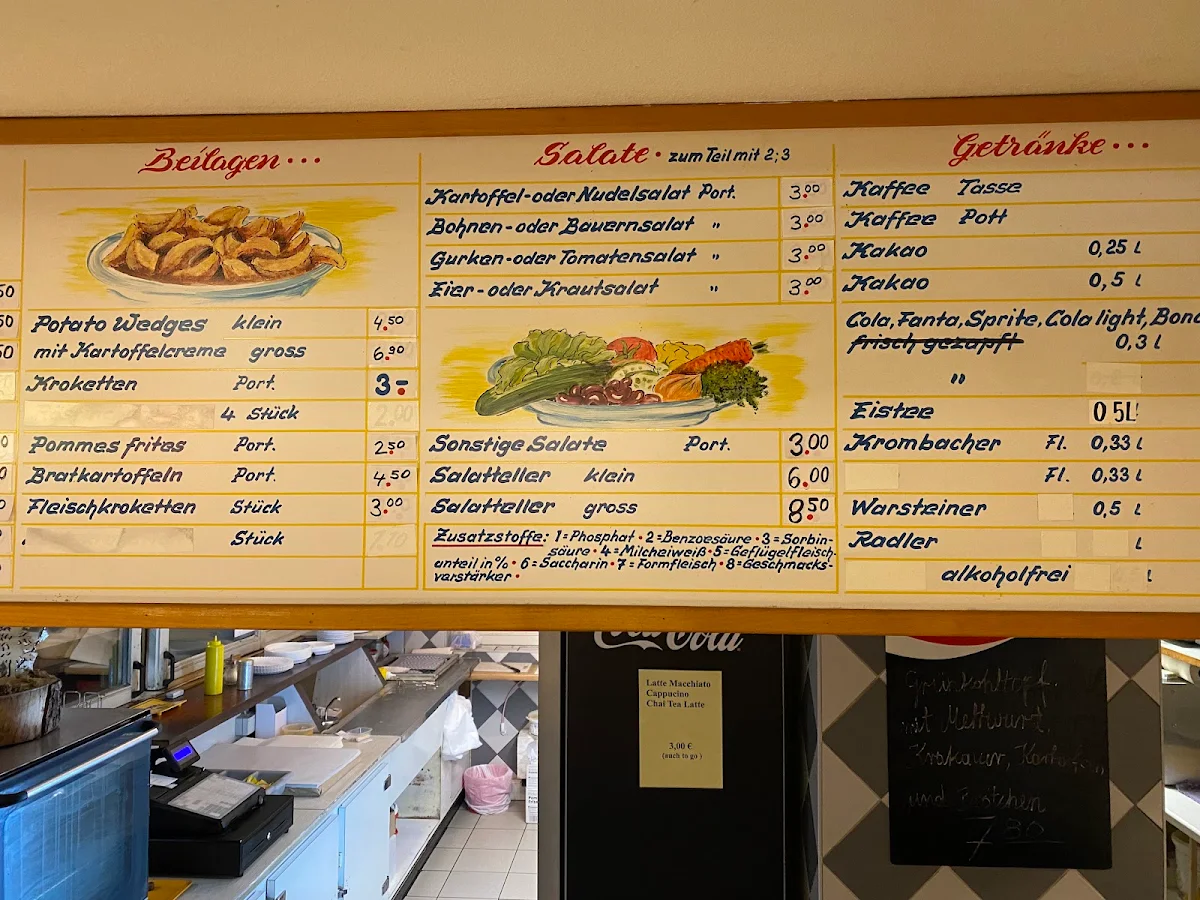 Beilagen...
Potato Wedges klein 4.50
mit Kartoffelcreme gross 6.90
Kroketten Port. 3.-
4 Stück 2.00
Pommes frites Port. 2.50
Bratkartoffeln Port. 4.50
Fleischkroketten Stück 3.00
Stück
Salate · zum Teil mit 2;3
Kartoffel-oder Nudelsalat Port. 3.00
Bohnen-oder Bauernsalat " 3.00
Gurken-oder Tomatensalat " 3.00
Eier-oder Krautsalat " 3.00
Sonstige Salate Port. 3.00
Salatteller klein 6.00
Salatteller gross 8.50
Zusatzstoffe: 1=Phosphat · 2=Benzoesäure · 3=Sorbin-
säure · 4=Milcheiweiß · 5=Geflügelfleisch-
anteil in% · 6=Saccharin · 7=Formfleisch · 8=Geschmacks-
verstärker ·
Getränke...
Kaffee Tasse
Kaffee Pott
Kakao 0,25 l
Kakao 0,5 l
Cola, Fanta, Sprite, Cola light, Bona
frisch gezapft 0,3 l
"
Eistee 0 5L
Krombacher Fl. 0,33 l
Fl. 0,33 l
Warsteiner 0,5 l
Radler l
alkoholfrei l
50
50
50
Coca Cola
Latte Macchiato
Cappucino
Chai Tea Latte
3,00 €
(auch to go )
Grünkohltopf
mit Mettwurst,
Krakauer,
und Brötchen
7,80